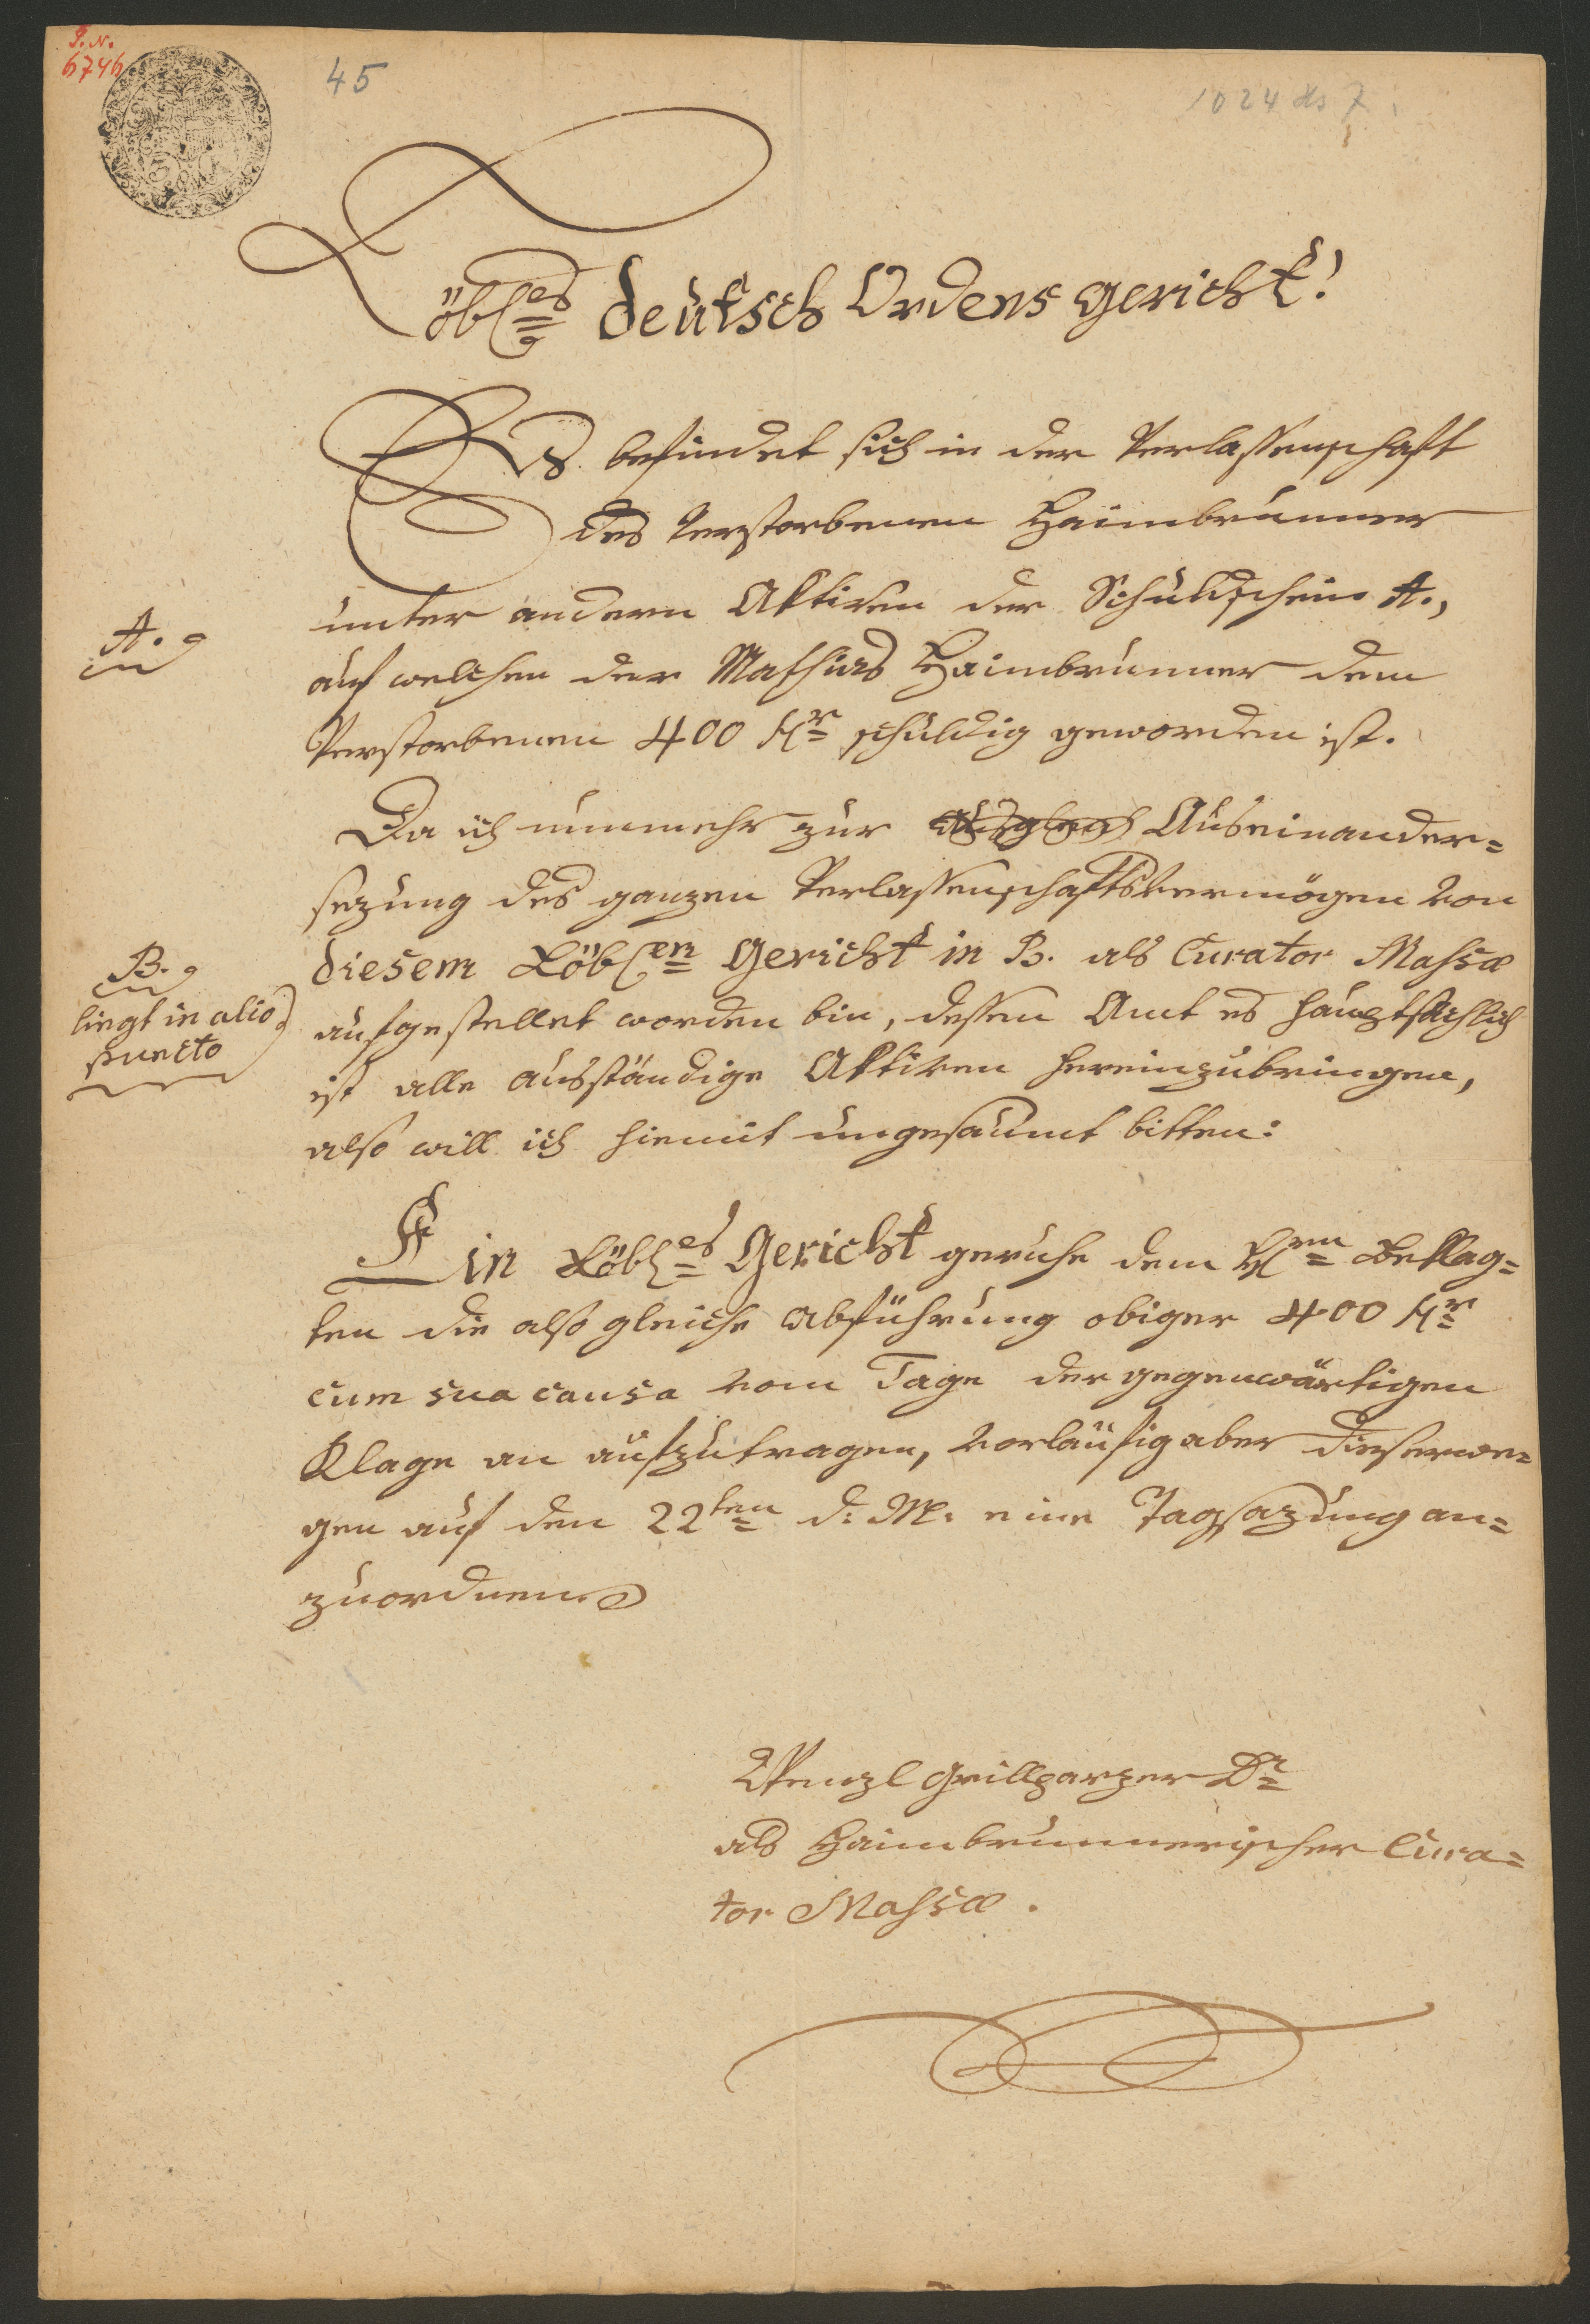 I. N.
6746
45
1024 ds 7
Löbl.es deutsch Ordens gericht!
Es befindet sich in der Verlassenschaft
des Verstorbenen Haimbrunner
unter andern Aktiven der Schuldschein A.,
A.
auf welchen der Mathias Haimbrunner dem
Verstorbenen 400 fl.r schuldig geworden ist.
Da ich nunmehr zur Auseinander=
sezung des ganzen Verlassenschaftsvermögen von
diesem Löbl.en Gericht in B. als Curator Massæ
B.
liegt in alio
puncto
aufgestellet worden bin, dessen Amt es hauptsächlich
ist alle ausständige Aktiven hereinzubringen,
also will ich hiemit ungesaumt bitten:
Ein Löbl.es Gericht geruhe dem H.rn Beklag=
ten die alsogleiche Abführung obiger 400 fl.r
cum sua causa vom Tage der gegenwärtigen
Klage an aufzutragen, vorläufig aber dieserwe=
gen auf den 22ten d: M: eine Tagsazung an=
zuordnen.
Wenzl Grillparzer Dr
als Haimbrunnerischer Cura=
tor Massæ.